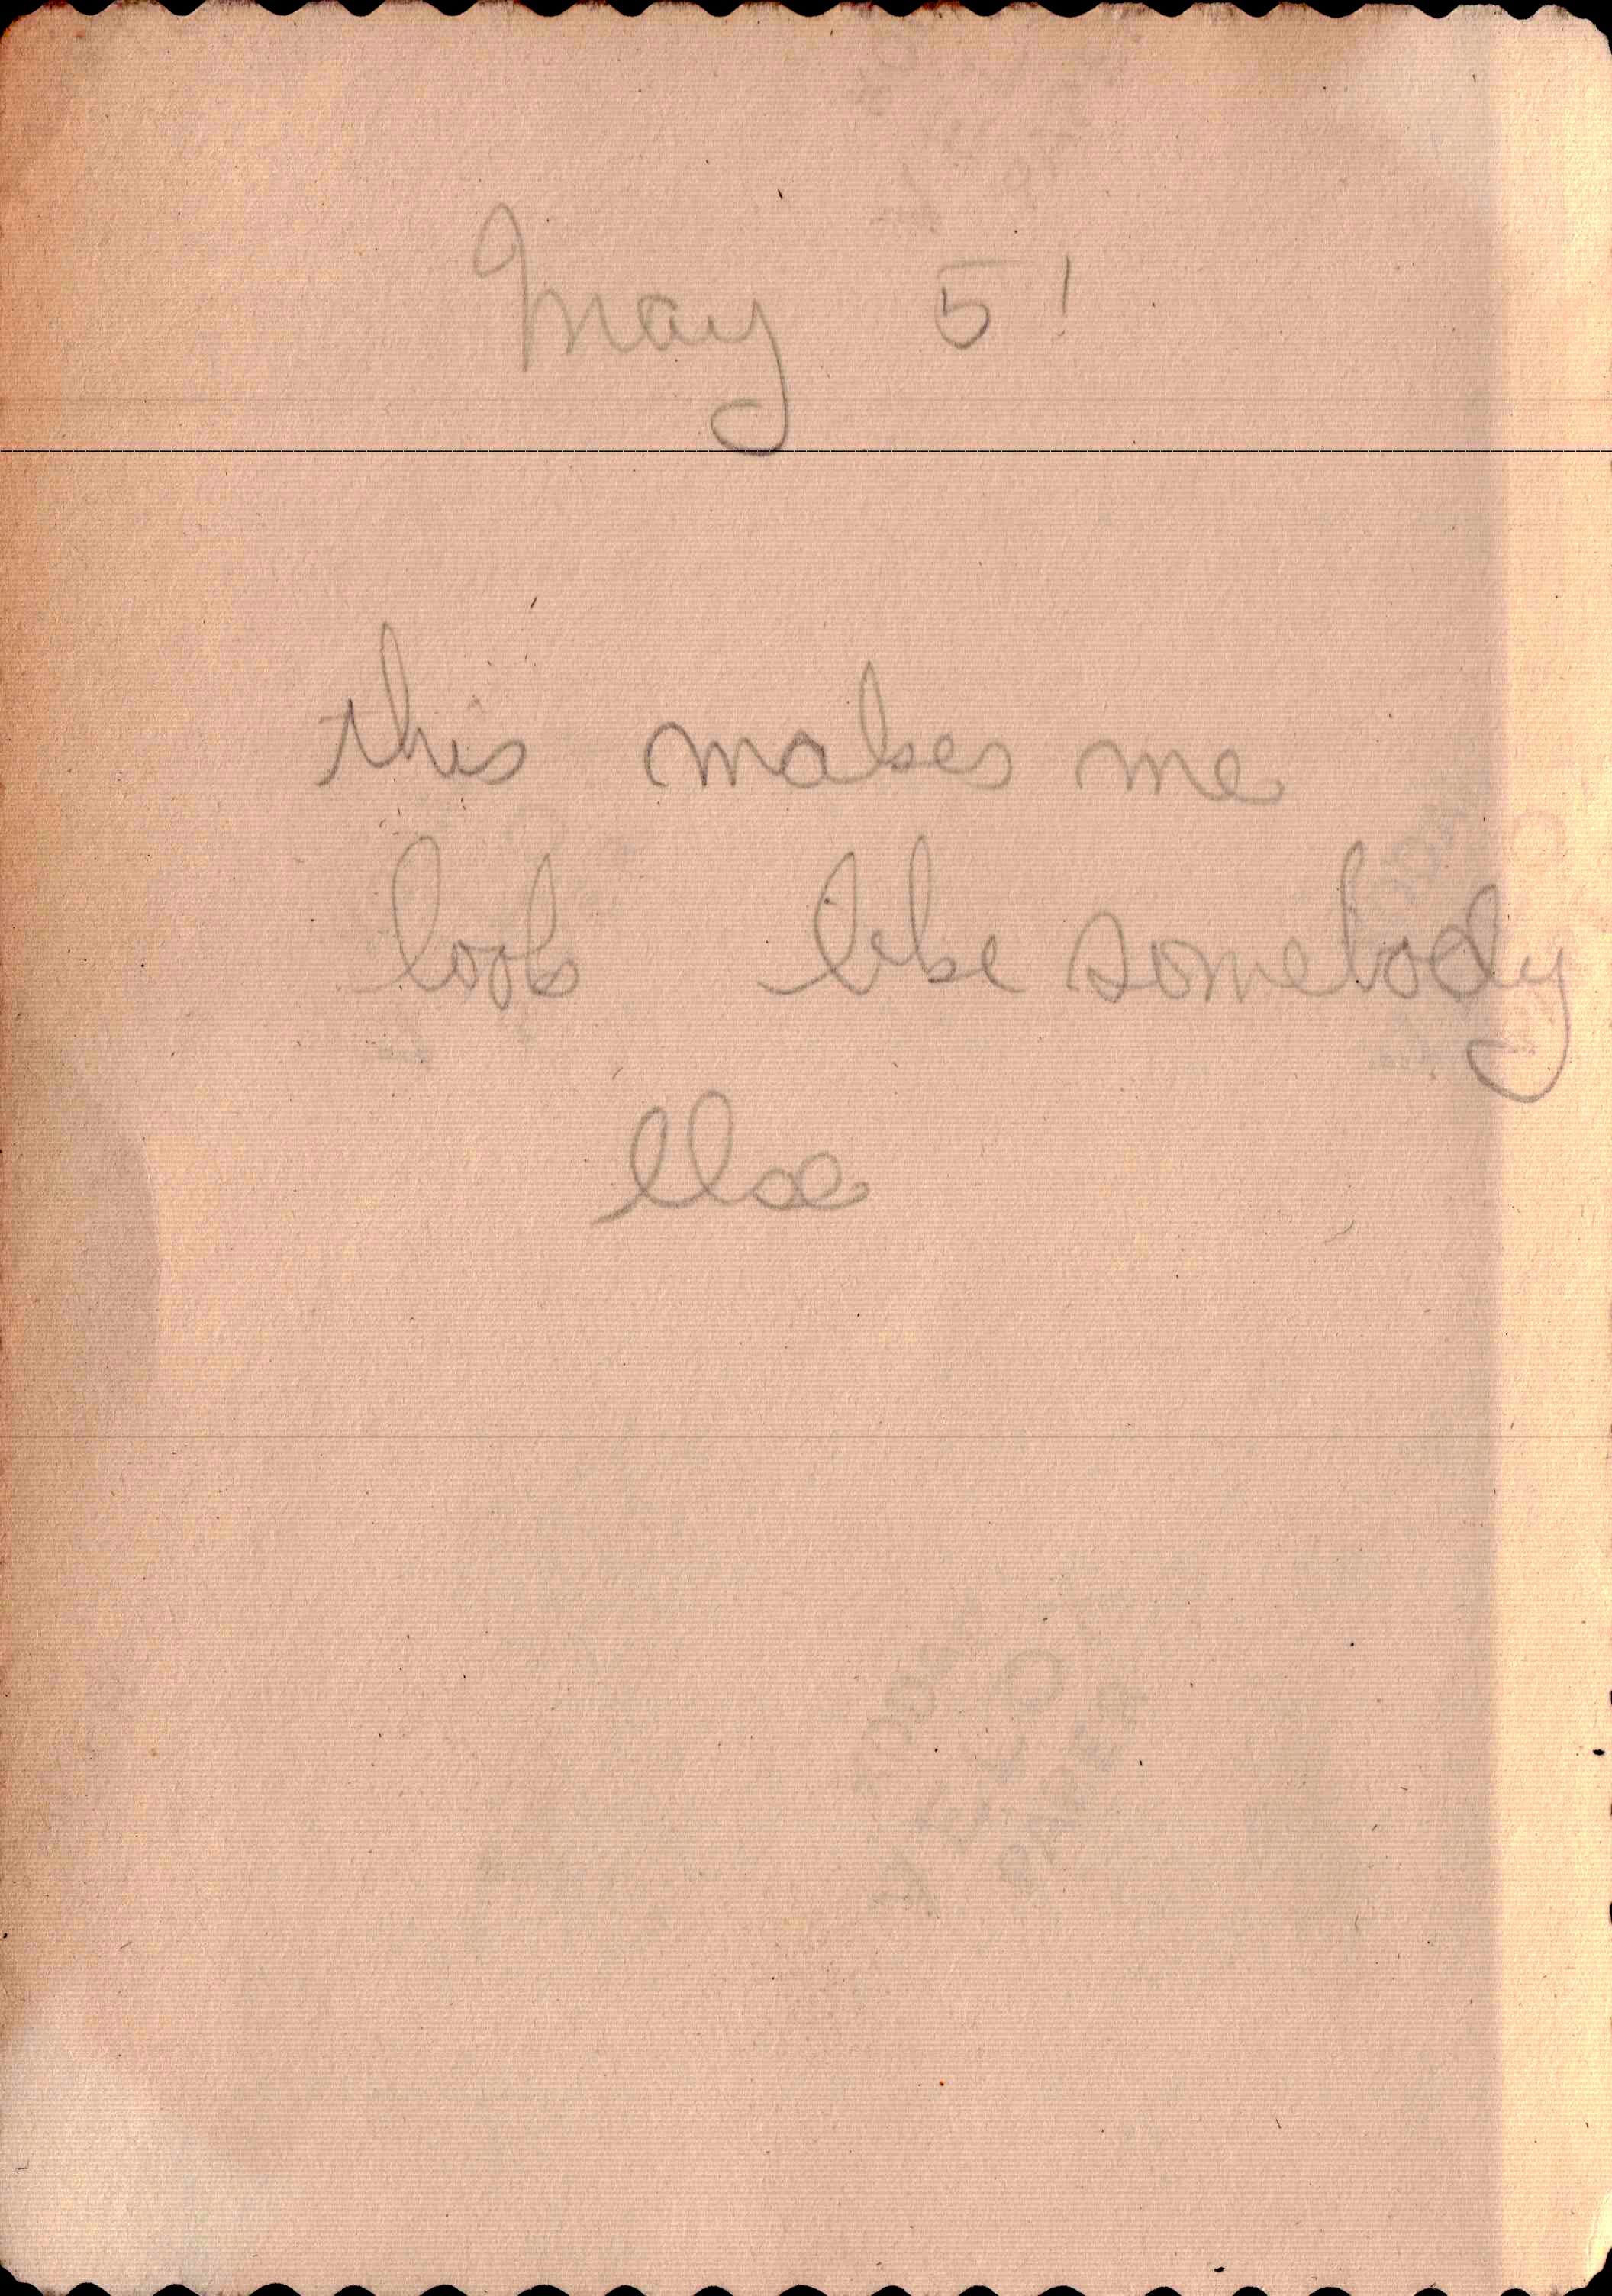 May 5'
this makes me
look like somebody
else